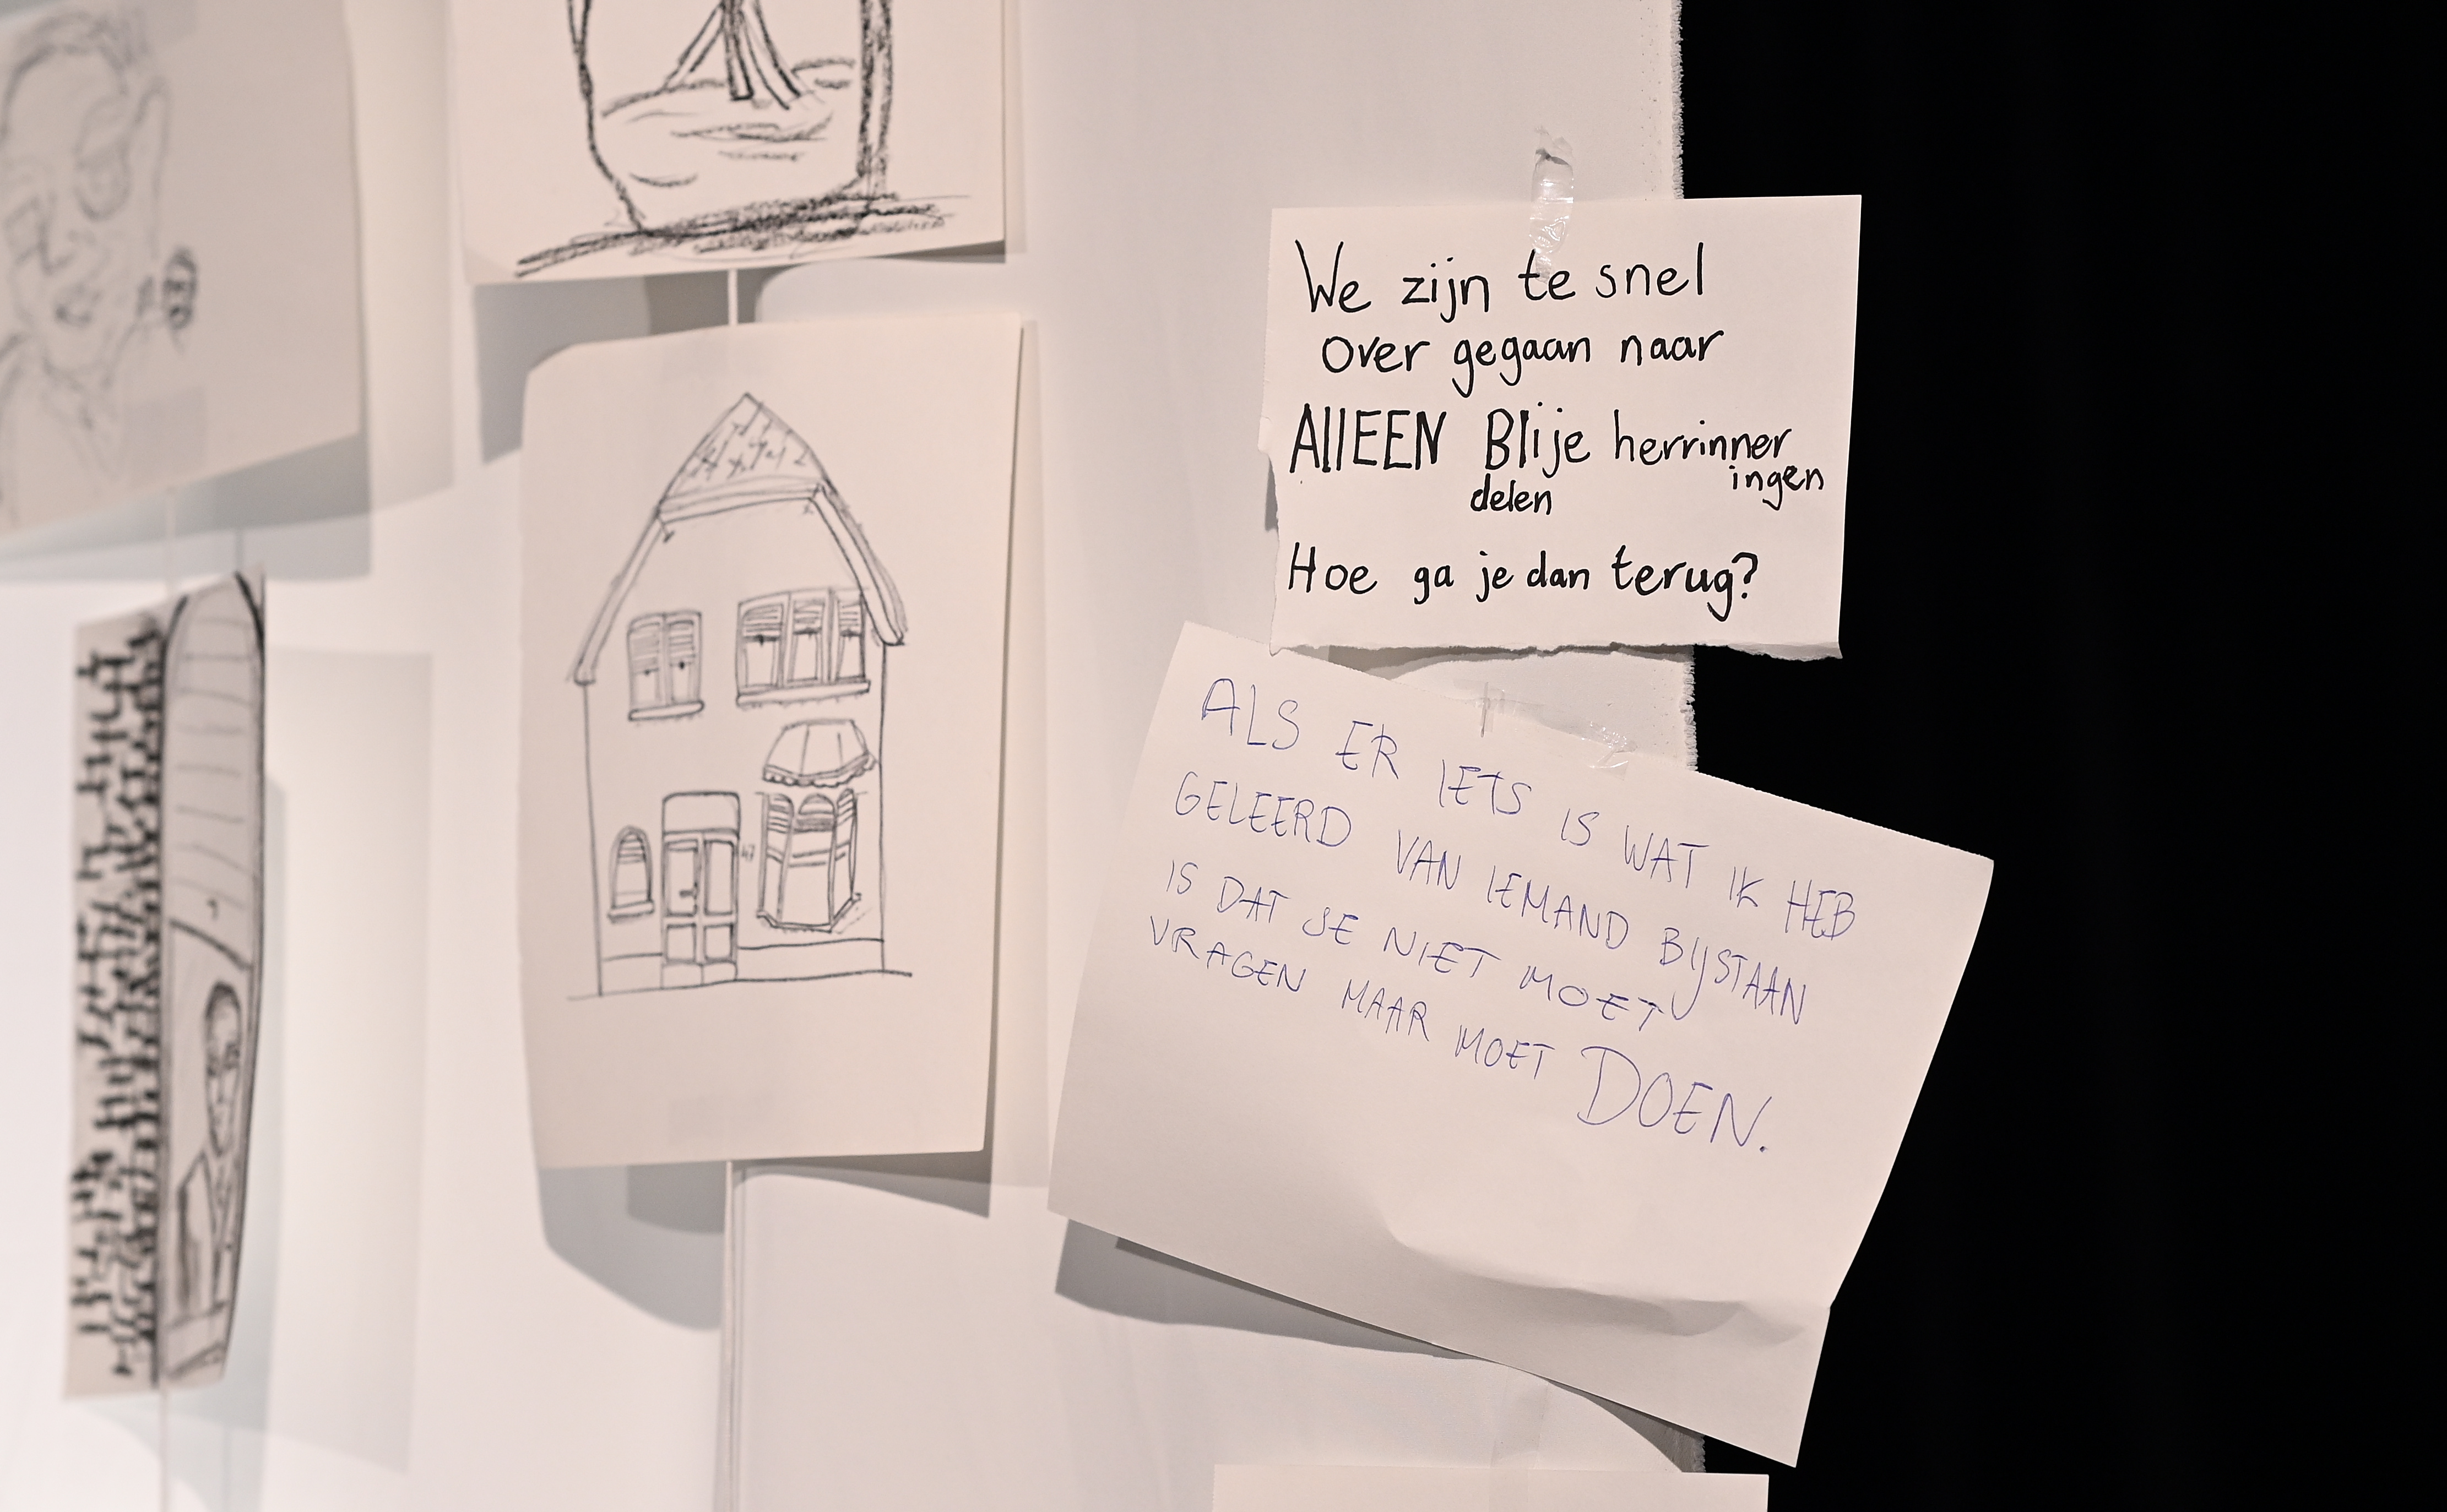 We zijn te snel
over gegaan naar
AllEEN Blije herrinner
ingen
delen
Hoe ga je dan terug?
ALS ER IETS IS WAT IK HEB
GELEERD VAN IEMAND BIJSTAAN
IS DAT JE NIET MOET
VRAGEN MAAR MOET DOEN.